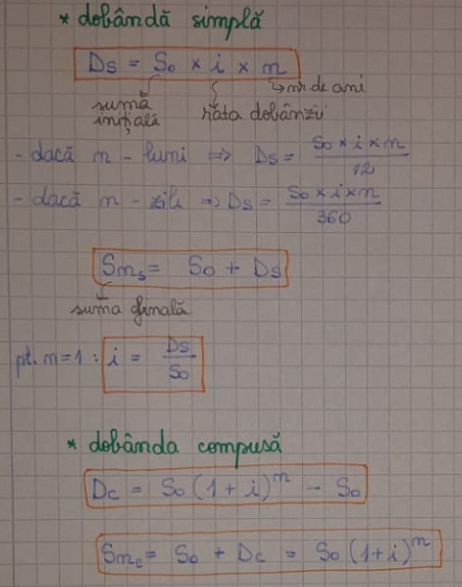 * dobândă simplă
Ds = So × i × n
↳ nr de ani
sumă inițială
rata dobânzii
- dacă n - luni => Ds = So × i × n / 12
- dacă n - zile => Ds = So × i × n / 360
Sns = So + Ds
suma finală
pt. n=1 : i = Ds / So
* dobânda compusă
Dc = So (1 + i)^n - So
Snc = So + Dc = So (1+i)^n